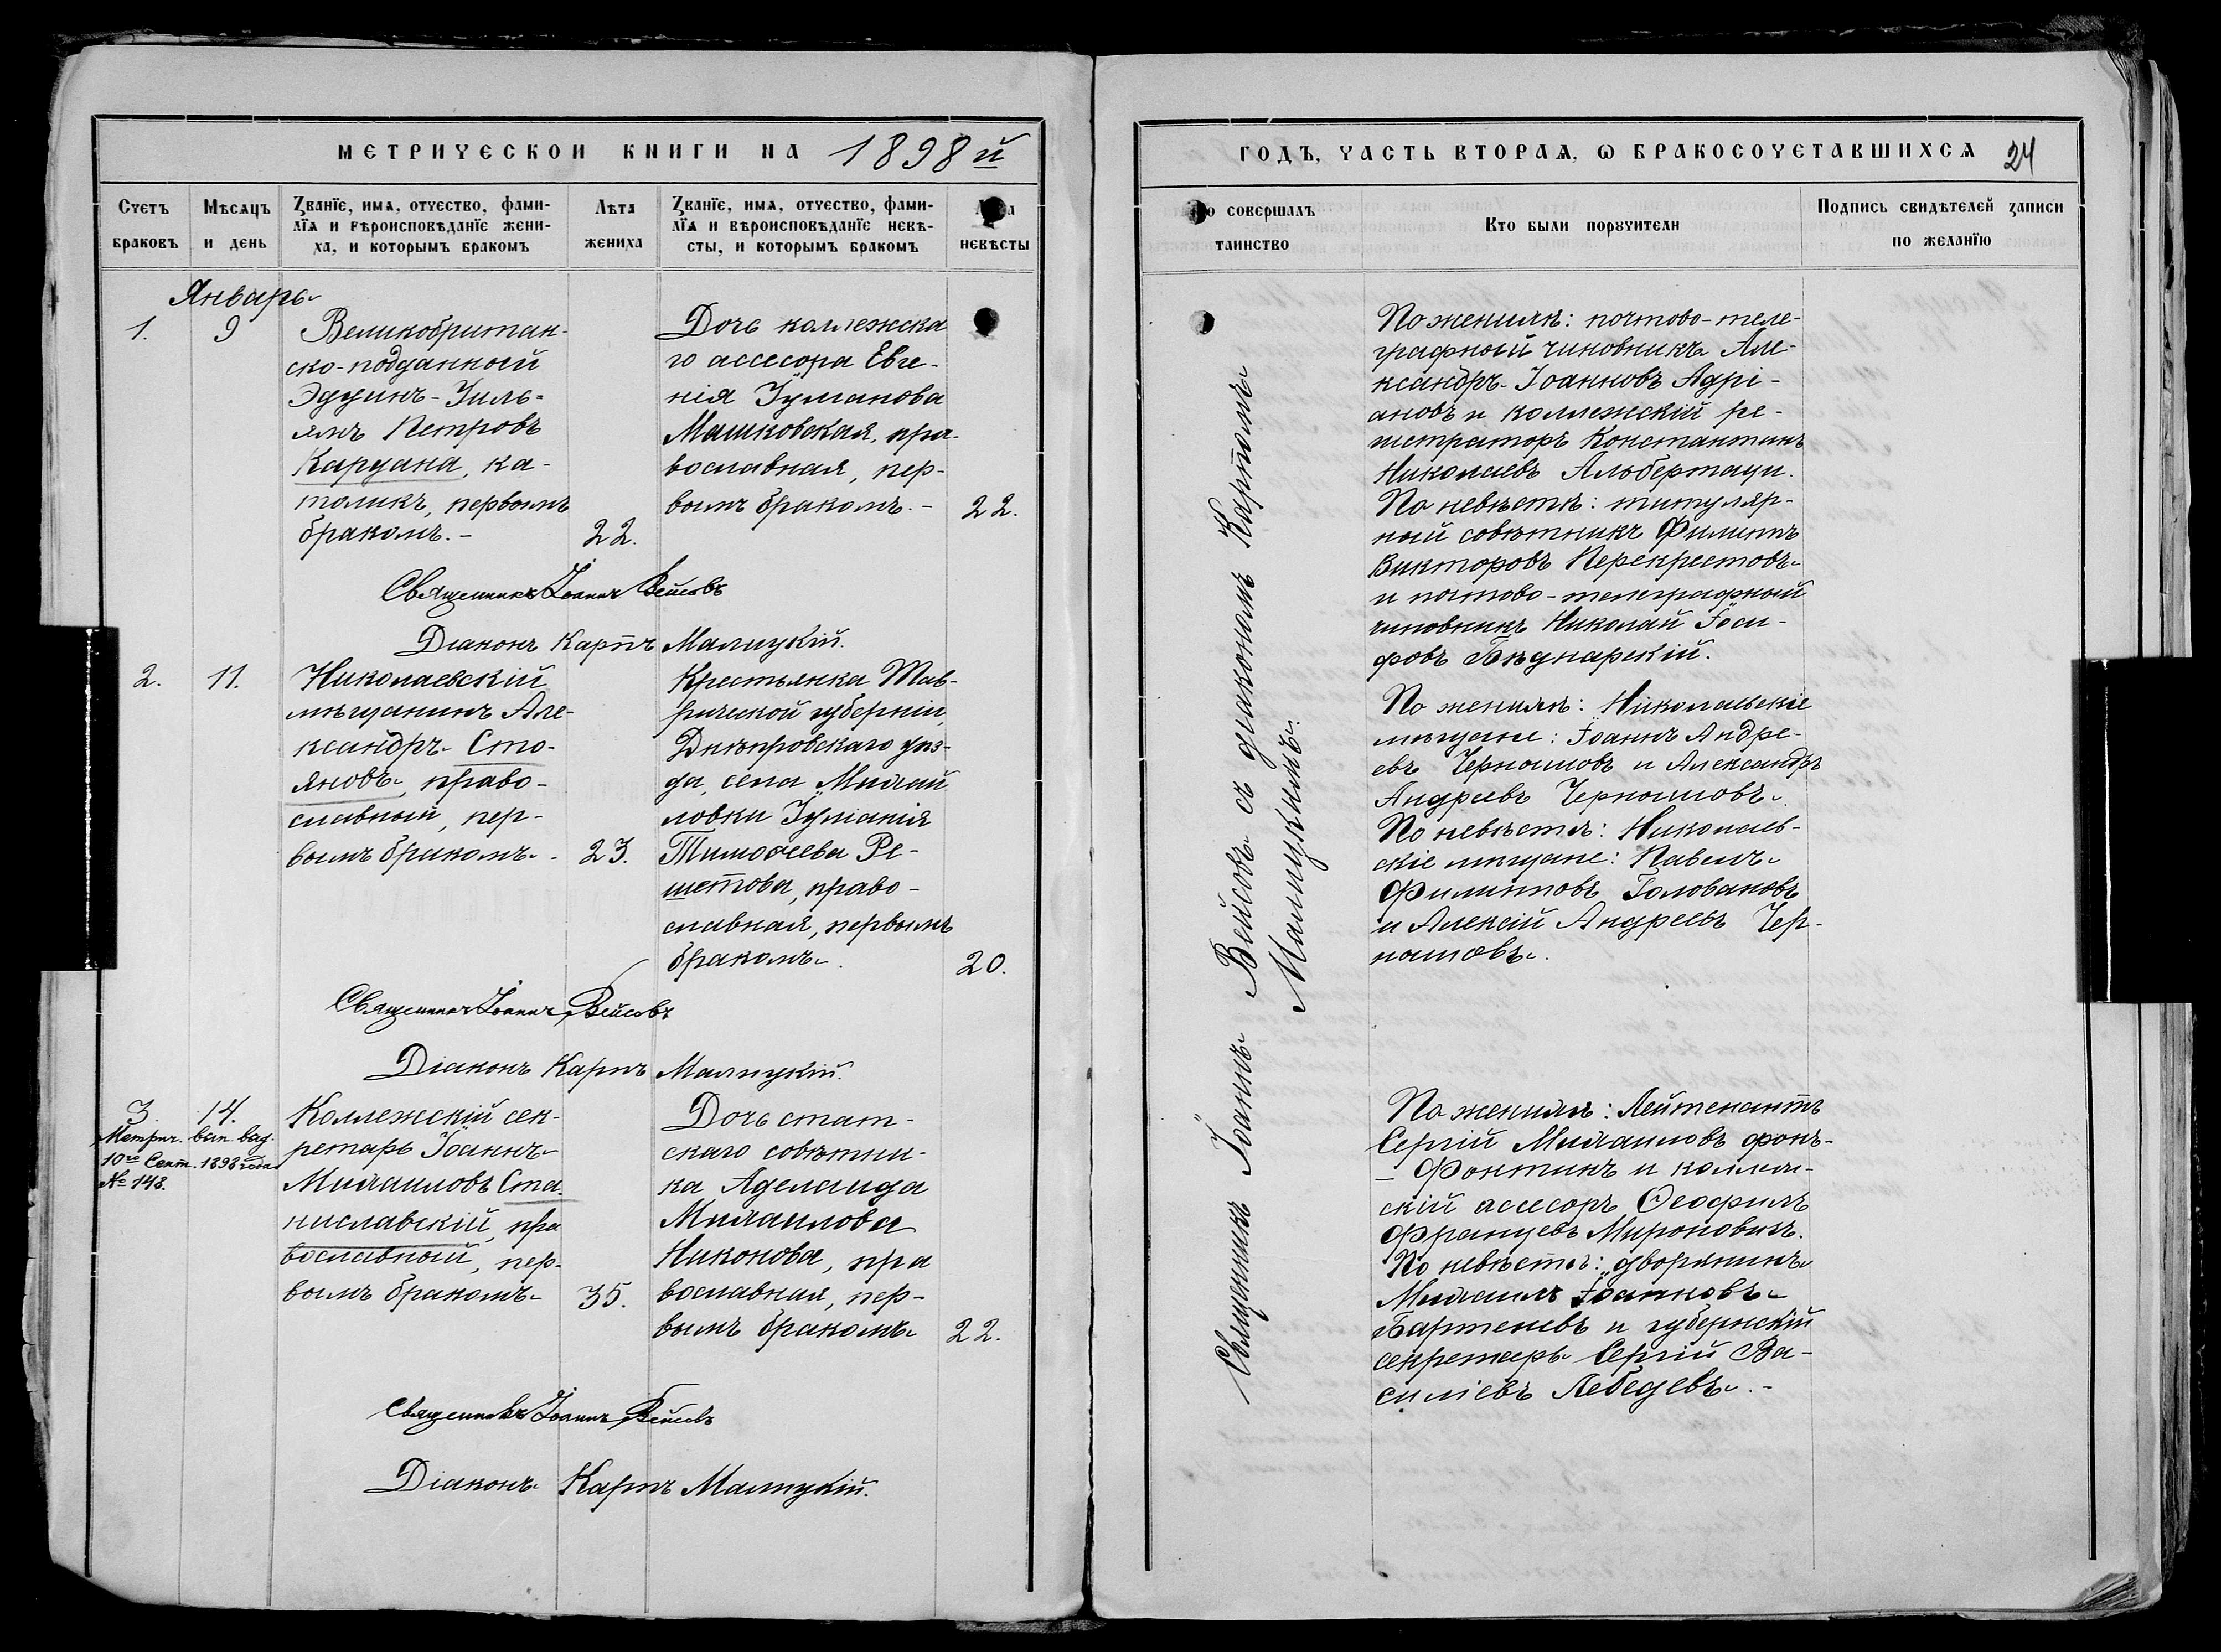 МЕТРИЧЕСКОЙ КНИГИ НА 1898й
Счетъ браковъ
Мѣсяцъ и день
Званїе, имя, отчество, фами-
лїя и вѣроисповѣданїе жени-
ха, и которымъ бракомъ
Лѣта жениха
Званїе, имя, отчество, фами-
лїя и вѣроисповѣданїе невѣ-
сты, и которымъ бракомъ
невѣсты
Январь
1. 9
Великобритан-
ско-подданный
Эдуинъ-Уиль-
ямъ Петровъ
Каруана, ка-
толикъ, первымъ
бракомъ.-
22.
Дочь коллежска
го ассесора Евге-
нія Іуліанова
Машковская, пра-
вославная, пер-
вымъ бракомъ.-
22.
Священникъ Іоаннъ Вейсовъ
Діаконъ Карпъ Малицкій.
2. 11.
Николаевскій
мѣщанинъ Але-
ксандръ Сто-
яновъ, право-
славный, пер-
вымъ бракомъ.-
23.
Крестьянка Тав-
рической губерніи,
Днѣпровскаго уѣз-
да, села Михай
ловки Іуліанія
Тимоѳеева Ре-
шетова, право-
славная, первымъ
бракомъ.
20.
Священникъ Іоаннъ Вейсовъ
Діаконъ Карпъ Малицкій.
3. 14.
Метрич. вып. выд.
10го Сент. 1898 года
№ 148.
Коллежскій сек-
ретарь Іоаннъ
Михаиловъ Ста-
ниславскій, пра
вославный, пер-
вымъ бракомъ
35.
Дочь стат-
скаго совѣтни-
ка Аделаида
Михаилова
Никонова, пра
вославная, пер-
вымъ бракомъ
22.
Священникъ Іоаннъ Вейсовъ
Діаконъ Карпъ Малицкій.
ГОДЪ, ЧАСТЬ ВТОРАЯ, Ѡ БРАКОСОЧЕТАВШИХСЯ 24
совершалъ
таинство
Кто были поручители
Подпись свидѣтелей записи
по желанїю
Священникъ Іоаннъ Вейсовъ съ діакономъ Карпомъ
Малицкимъ.
По женихѣ: почтово-теле-
графный чиновникъ Але-
ксандръ Іоанновъ Адрі-
ановъ и коллежскій ре-
гистраторъ Константинъ
Николаевъ Альбертаци.
По невѣстѣ: титуляр-
ный совѣтникъ Филиппъ
Викторовъ Перекрестовъ
и почтово-телеграфный
чиновникъ Николай Іоси-
фовъ Бѣднарскій.
По женихѣ: Николаевскіе
мѣщане: Іоаннъ Андре-
евъ Черноиловъ и Александръ
Андреевъ Черноиловъ.
По невѣстѣ: Николаев-
скіе мѣщане: Павелъ
Филипповъ Головановъ
и Алексій Андреевъ Чер-
ноиловъ.
По женихѣ: Лейтенантъ
Сергій Михаиловъ фонъ-
-Фонтинъ и коллеж-
скій ассесоръ Ѳеофилъ
Францевъ Мироновичъ.
По невѣстѣ: дворянинъ
Михаилъ Іоанновъ
Бартеневъ и губернскій
секретарь Сергій Ва-
силіевъ Лебедевъ.-